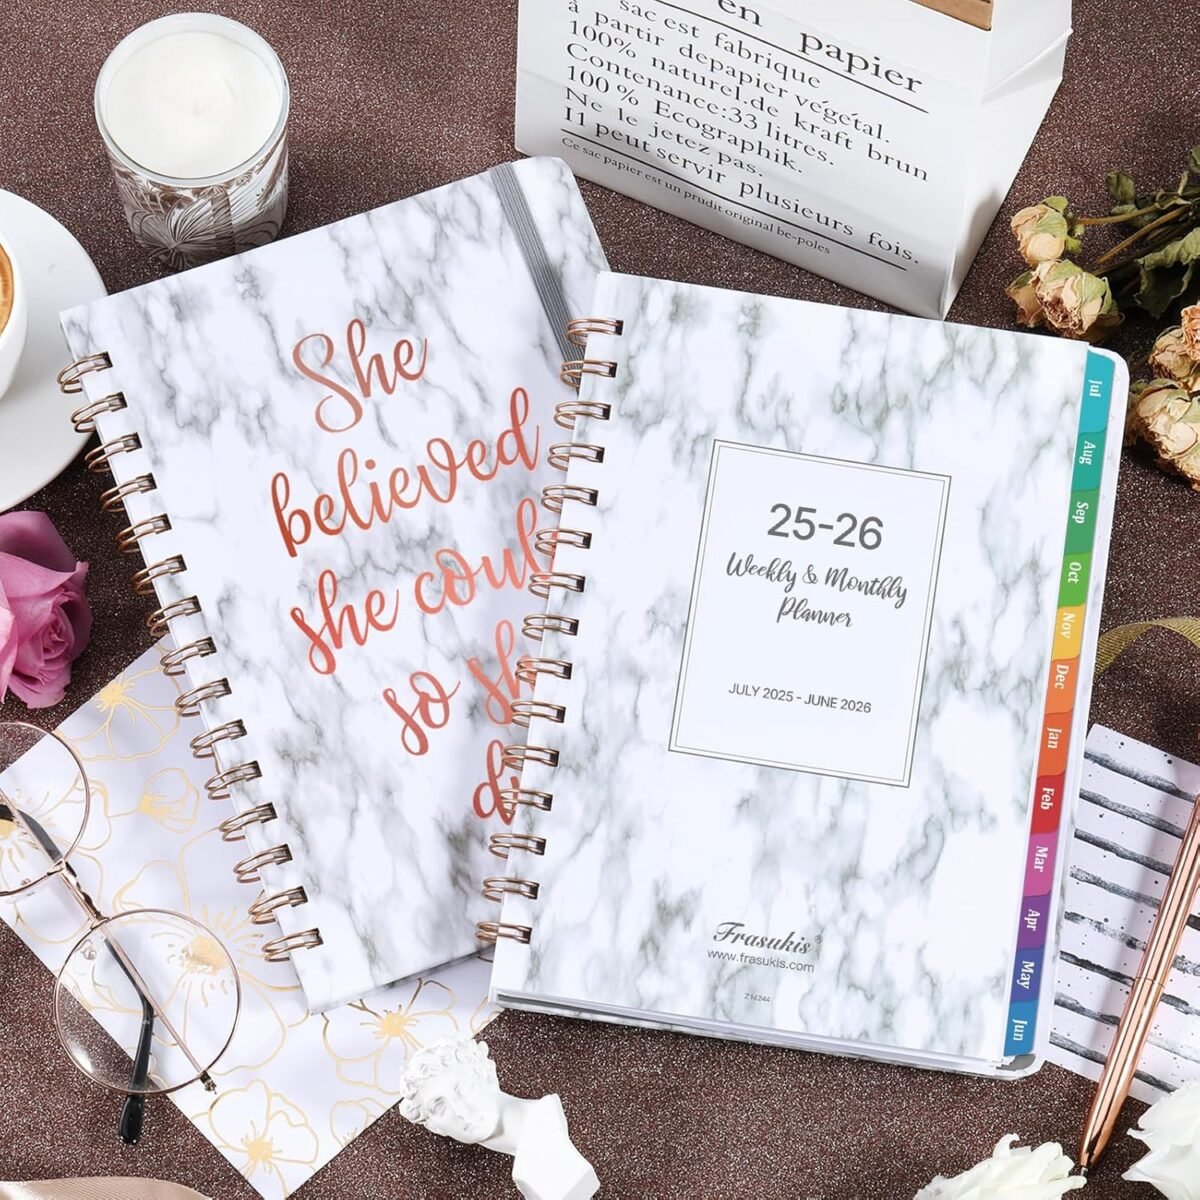 en papier
sac est fabrique
à partir depapier végétal.
100% naturel.de kraft brun
Contenance:33 litres.
100% Ecographik.
Ne le jetez pas.
I1 peut servir plusieurs fois.
Ce sac papier est un prudit original be-poles
She
believed
she coul
so sh
d
25-26
Weekly & Monthly
Planner
JULY 2025 - JUNE 2026
Frasukis®
www.frasukis.com
Z14344
Jul
Aug
Sep
Oct
Nov
Dec
Jan
Feb
Mar
Apr
May
Jun